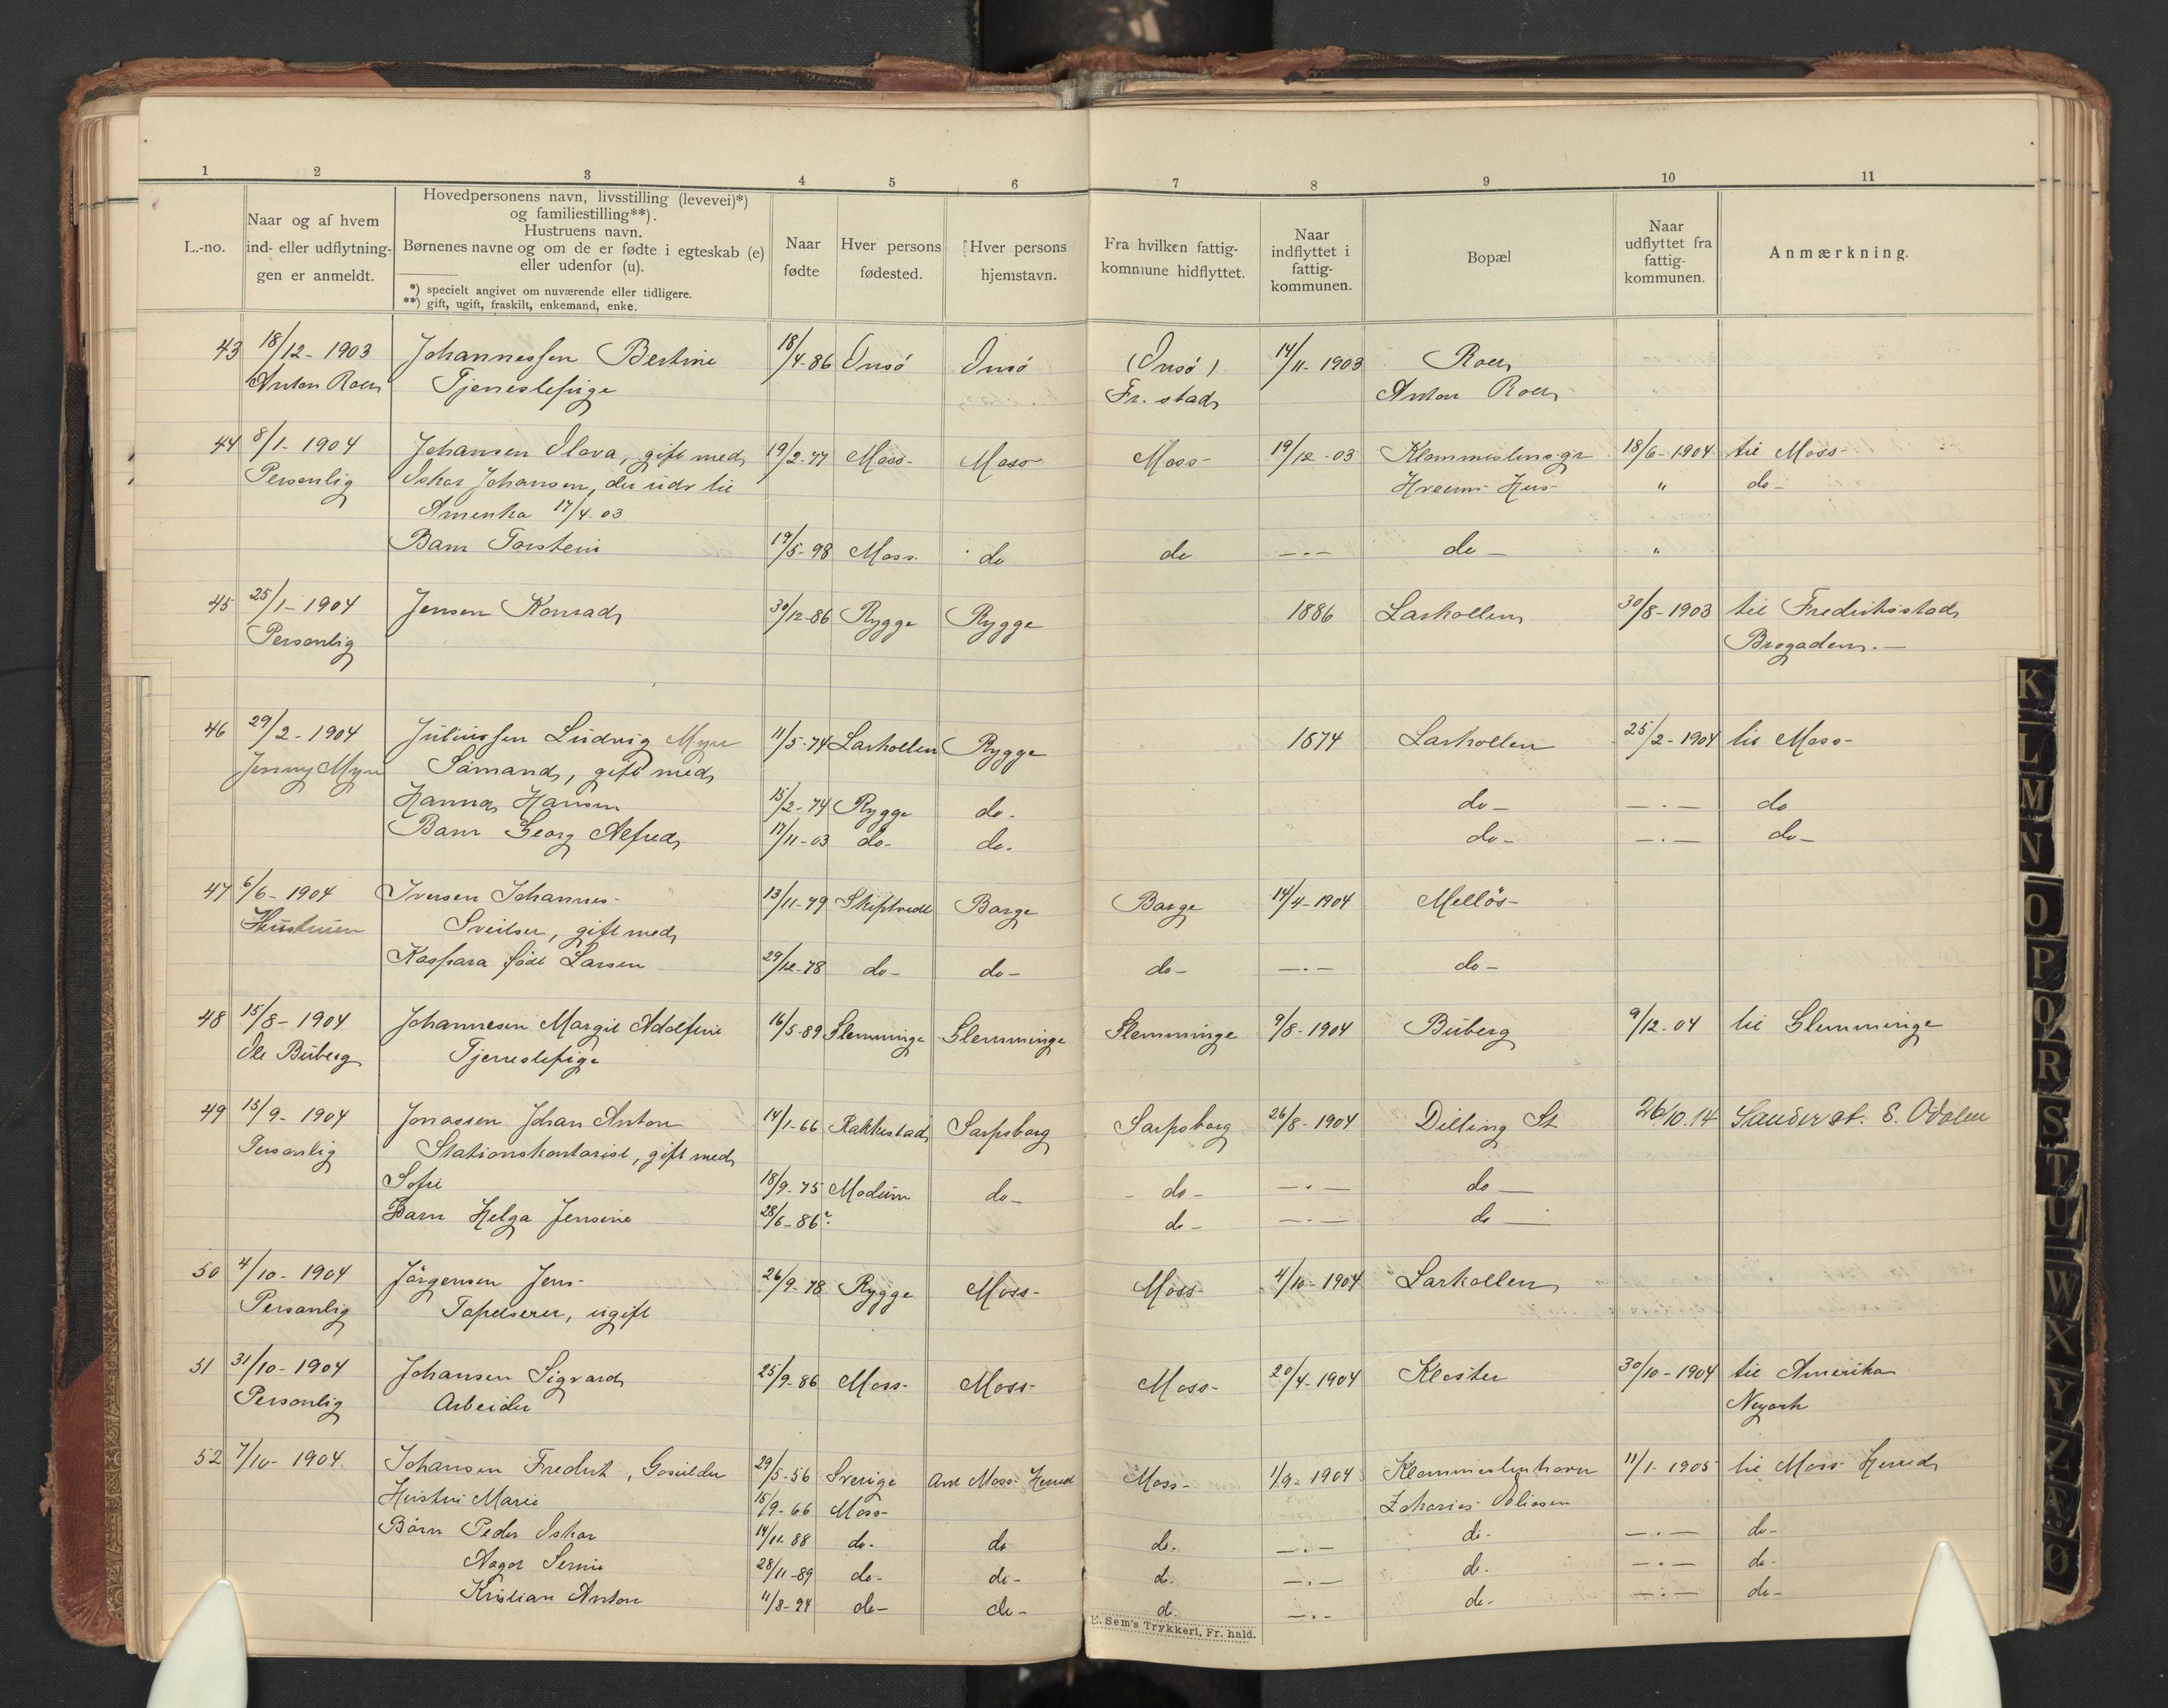 1 2 3 4 5 6 7 8 9 10 11
L.-no.
Naar og af hvem
ind- eller udflytnin-
gen er anmeldt.
Hovedpersonens navn, livsstilling (levevei)*)
og familiestilling**).
Hustruens navn.
Børnenes navne og om de er fødte i egteskab (e)
eller udenfor (u).
*) specielt angivet om nuværende eller tidligere.
**) gift, ugift, fraskilt, enkemand, enke.
Naar
fødte
Hver persons
fødested.
Hver persons
hjemstavn.
Fra hvilken fattig-
kommune hidflyttet.
Naar
indflyttet i
fattig-
kommunen.
Bopæl
Naar
udflyttet fra
fattig-
kommunen.
Anmærkning.
43 18/12- 1903 Johannessen Bertine 18/4-86 Onsö Onsö (Onsö) 14/11-1903 Roer
Anton Roer Tjenestepige Fr. stad Anton Roer
44 8/1- 1904 Johansen Olava, gift med 19/2-77 Moss- Moss Moss- 19/12-03 18/6-1904 til Moss-
Personlig Oskar Johansen, der udv til Hus- " do-
Amerika 17/4.03
Barn Torstein 19/5-98 Moss- do do -.- do- "
45 25/1- 1904 Jensen Konrad 30/12-86 Rygge Rygge 1886 Larkollen 30/8-1903 til Fredrikstad
Personlig
46 29/2- 1904 Juliussen Ludvig Myre 11/5-74 Larkollen Rygge 1874 Larkollen 25/2-1904 til Moss-
Jenny Myre Sömand, gift med
Hanna Hansen 15/2-74 Rygge do- do- -.- do
Barn Georg Alfred 17/11-03 do- do- do- -.- do-
47 6/6- 1904 Iversen Johannes- 13/11-79 Skiptvedt Borge Borge 14/4-1904 Mellös-
Hustruen Sveitser, gift med
Kaspara född Larsen 29/12-78 do- do- do- -.- do-
48 15/8- 1904 Johannesen Margit Adolfine 16/5-89 Glemminge Glemminge Glemminge 9/8-1904 Buberg 9/12-04 til Glemminge
Ole Buberg Tjenestepige
49 15/9- 1904 Jonassen Johan Anton 14/1-66 Rakkestad Sarpsborg Sarpsborg 26/8-1904 Dilling St 26/10.14 Sander st. S. Odalen
Personlig Stationskontorist, gift med
Sofie 18/9-75 Modum do- - do- -.- do-
Barn Helga Jensine 28/6-86? do- -.- do-
50 4/10- 1904 Jörgensen Jens- 26/9-78 Rygge Moss- Moss- 4/10-1904 Larkollen
Personlig Tapetserer, ugift
51 31/10- 1904 Johansen Sigvard 25/9-86 Moss- Moss- Moss- 20/4-1904 Kloster 30/10-1904 til Amerika
Personlig Arbeider Neyork
52 7/10- 1904 Johansen Fredrik, 29/5-56 Sverige Ant Moss- Herred Moss- 1/9-1904 11/1-1905 til Moss Herred
Hustru Marie 15/9-66 Moss-
Börn Peder Oskar 14/11-88 do- do do- -.- do- -.- do-
28/11-89 do- do- do- -.- do- -.- do-
Kristian Anton 11/3-94 do- do- do- -.- do- -.- do-
E. Sem's Trykkeri, Fr. hald.
K
L
M
N
O
P
Q
R
S
T
U
W
X
Y
Z
Ø